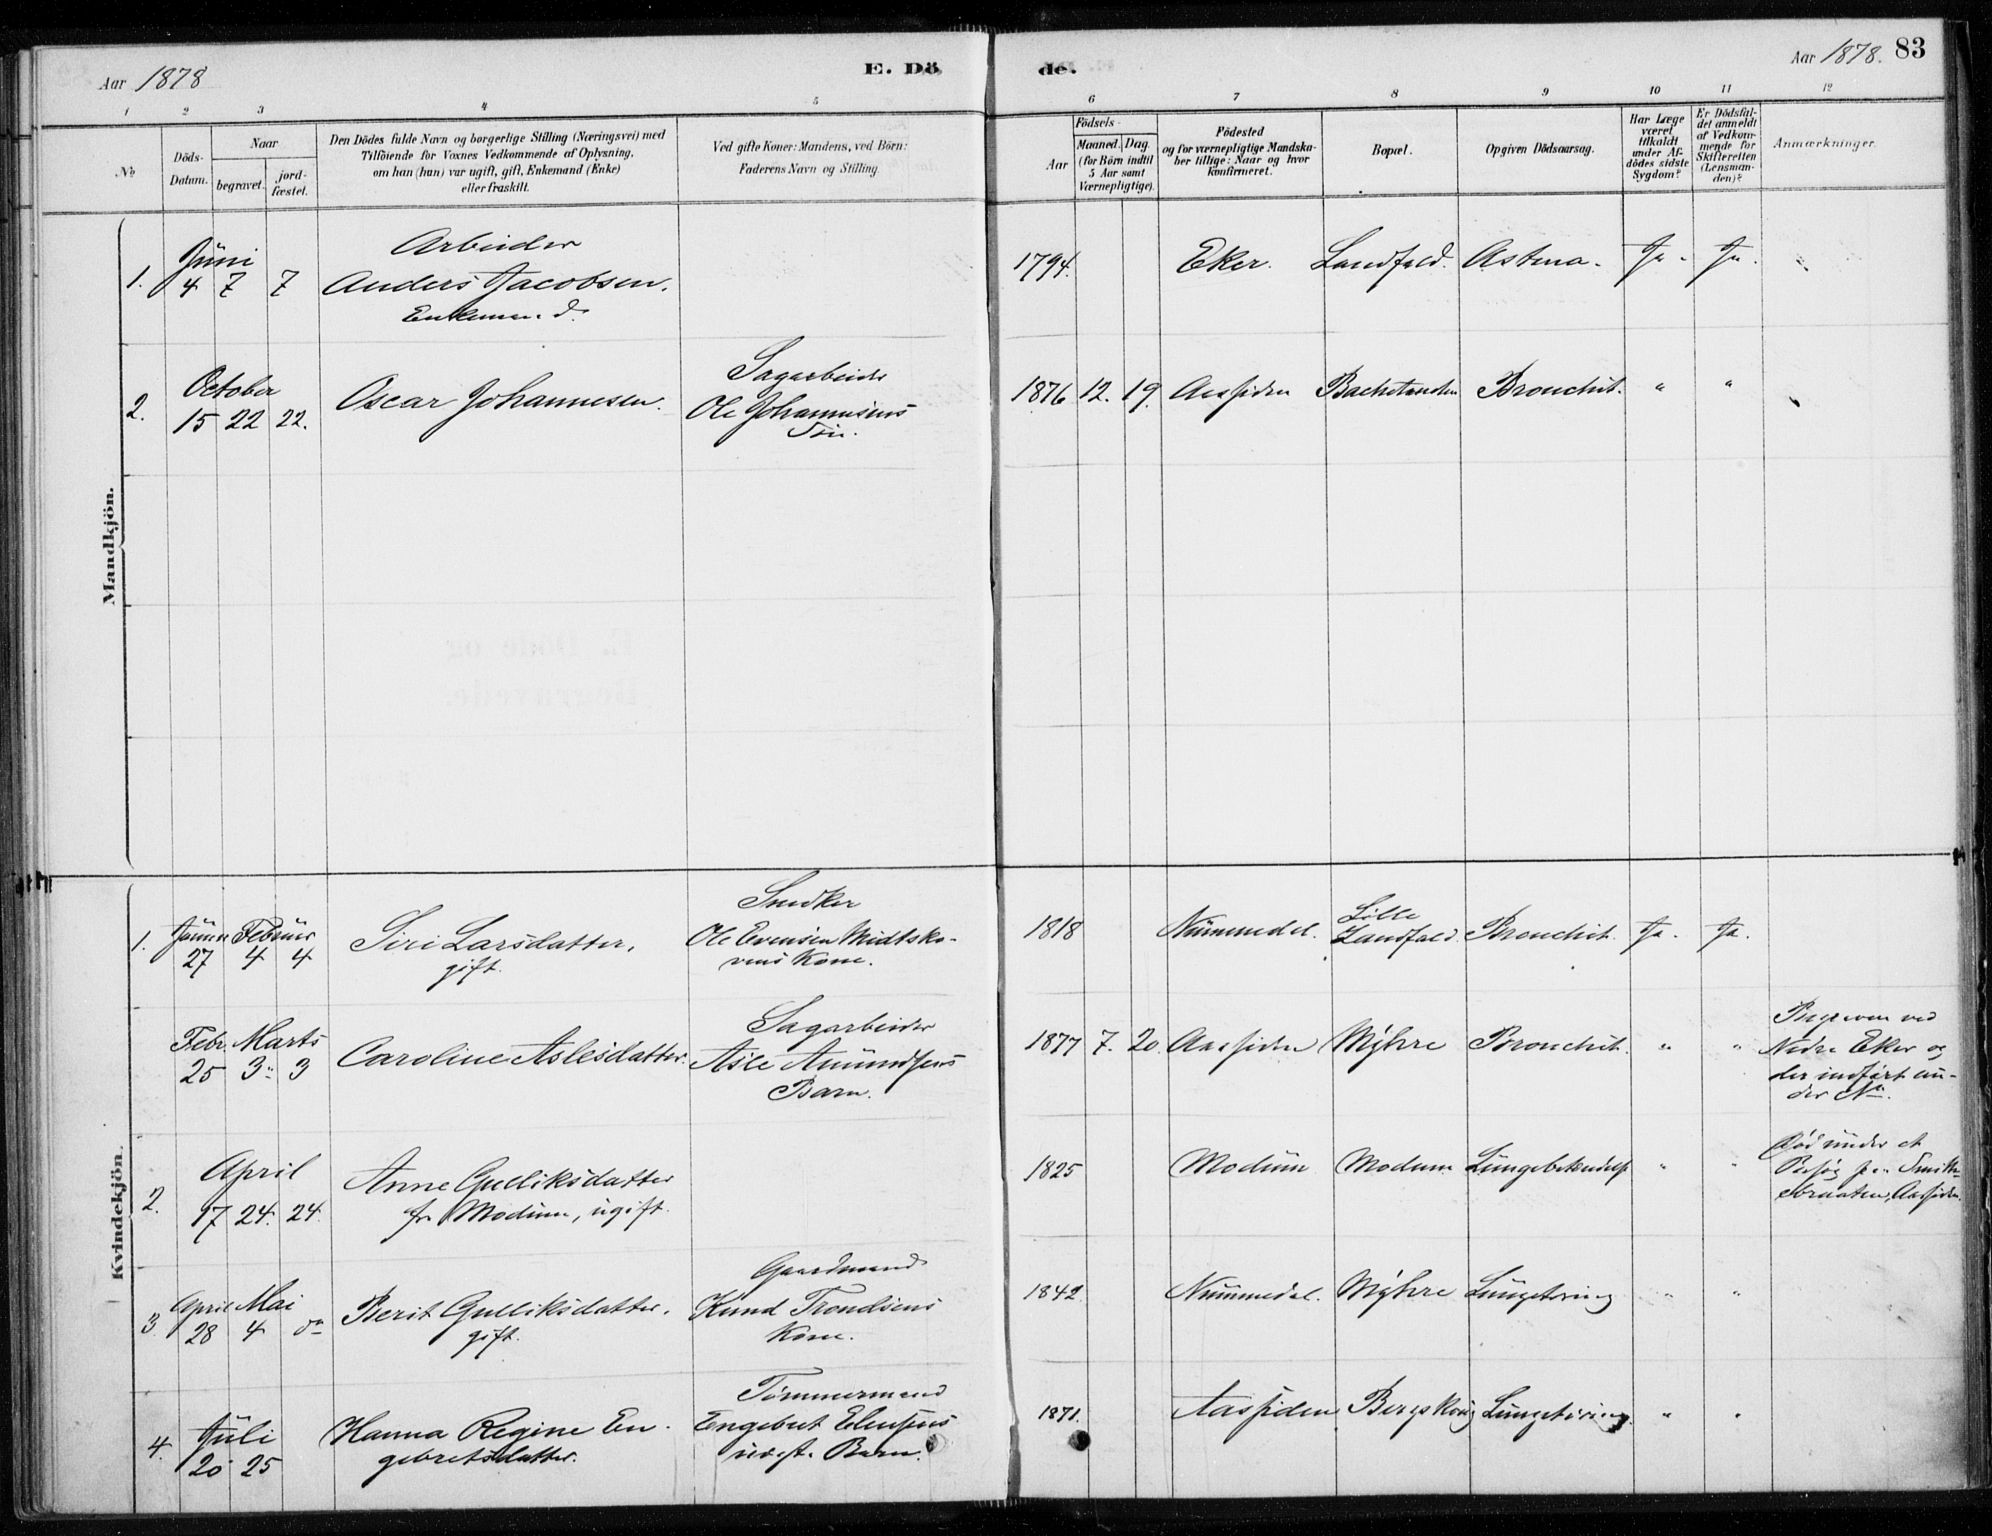 Aar 1878
E. Dö
de.
Aar 1878.
83
1 2 3 4 5 6 7 8 9 10 11 12
No
Döds-
Datum.
Naar
begravet.
jord-
fæstet.
Den Dödes fulde Navn og borgerlige Stilling (Næringsvei) med
Tilföiende for Voxnes Vedkommende af Oplysning,
om han (hun) var ugift, gift, Enkemand (Enke)
eller fraskilt.
Ved gifte Koner: Mandens, ved Börn:
Faderens Navn og Stilling.
Födsels-
Aar
Maaned. Dag.
(for Börn indtil
5 Aar samt
Værnepligtige).
Födested
og for værnepligtige Mandska-
ber tillige: Naar og hvor
konfirmeret.
Bopæl.
Opgiven Dödsaarsag.
Har Læge
været
tilkaldt
under Af-
dödes sidste
Sygdom?
Er Dödsfal-
det anmeldt
af Vedkom-
mende for
Skifteretten
(Lensman-
den)?
Anmærkninger.
Mandkjön.
Juni
1. 4 7 7
Arbeider
Anders Jacobsen.
Enkemand.
1794. Eker. Landfald. Astma. Ja. Ja.
October
2. 15 22 22.
Oscar Johannesen.
Sagarbeider
Ole Johannesens
Søn.
1876 12. 19. Aassiden Bachstranden Bronchit. " "
Kvindekjön.
Januar Februar
1. 27 4 4
Siri Larsdatter,
gift.
Snedker
Ole Evensen Midtsko-
vens Kone.
1818 Nummedal. Lille
Landfald. Bronchit. Ja. Ja.
Febr. Marts
25 3 3
Caroline Aslesdatter.
Sagarbeider
Asle Amundsens
Barn.
1877 7. 20. Aassiden Myhre Bronchit. " "
Begraven ved
Nedre Eker og
der indført un-
der No.
April
2. 17 24. 24.
Anne Gulliksdatter
fr. Modum, ugift.
1825 Modum Modum Lungebetændelse " "
Død under et
Besøg paa
Aassiden.
April Mai
3. 28 4 do
Berit Gulliksdatter.
gift.
Gaardmand
Knud Trondsens
Kone.
1842. Nummedal. Myhre Lungetæring " "
Juli
4. 20 25
Hanna Regine En-
gebretsdatter.
Tømmermand
Engebret Ellensens
uægte Barn.
1871. Aassiden Bergskoug Lungetæring. " "